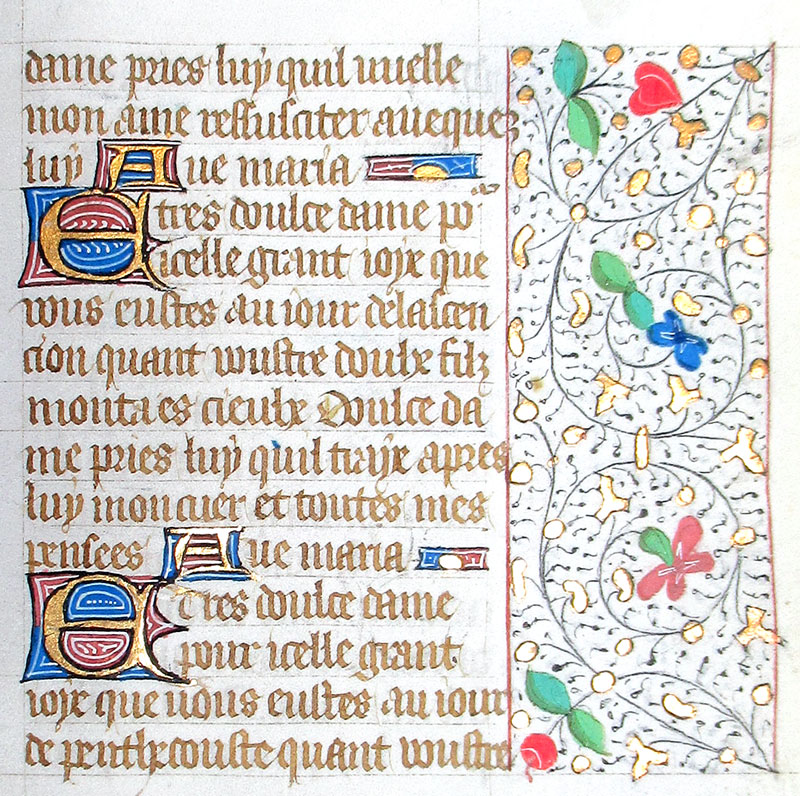 dame pries luy quil vuelle
mon ame ressusciter avequez
luy Ave maria
E tres doulce dame po
icelle grant ioye que
vous eustes au iour de lascen
cion quant vostre doulx filz
monta es cieulx Doulce da
me pries luy quil traye apres
luy mon cuer et toutes mes
pensees Ave maria
E tres doulce dame
pour icelle grant
ioye que vous eustes au iour
de penthecouste quant vostre